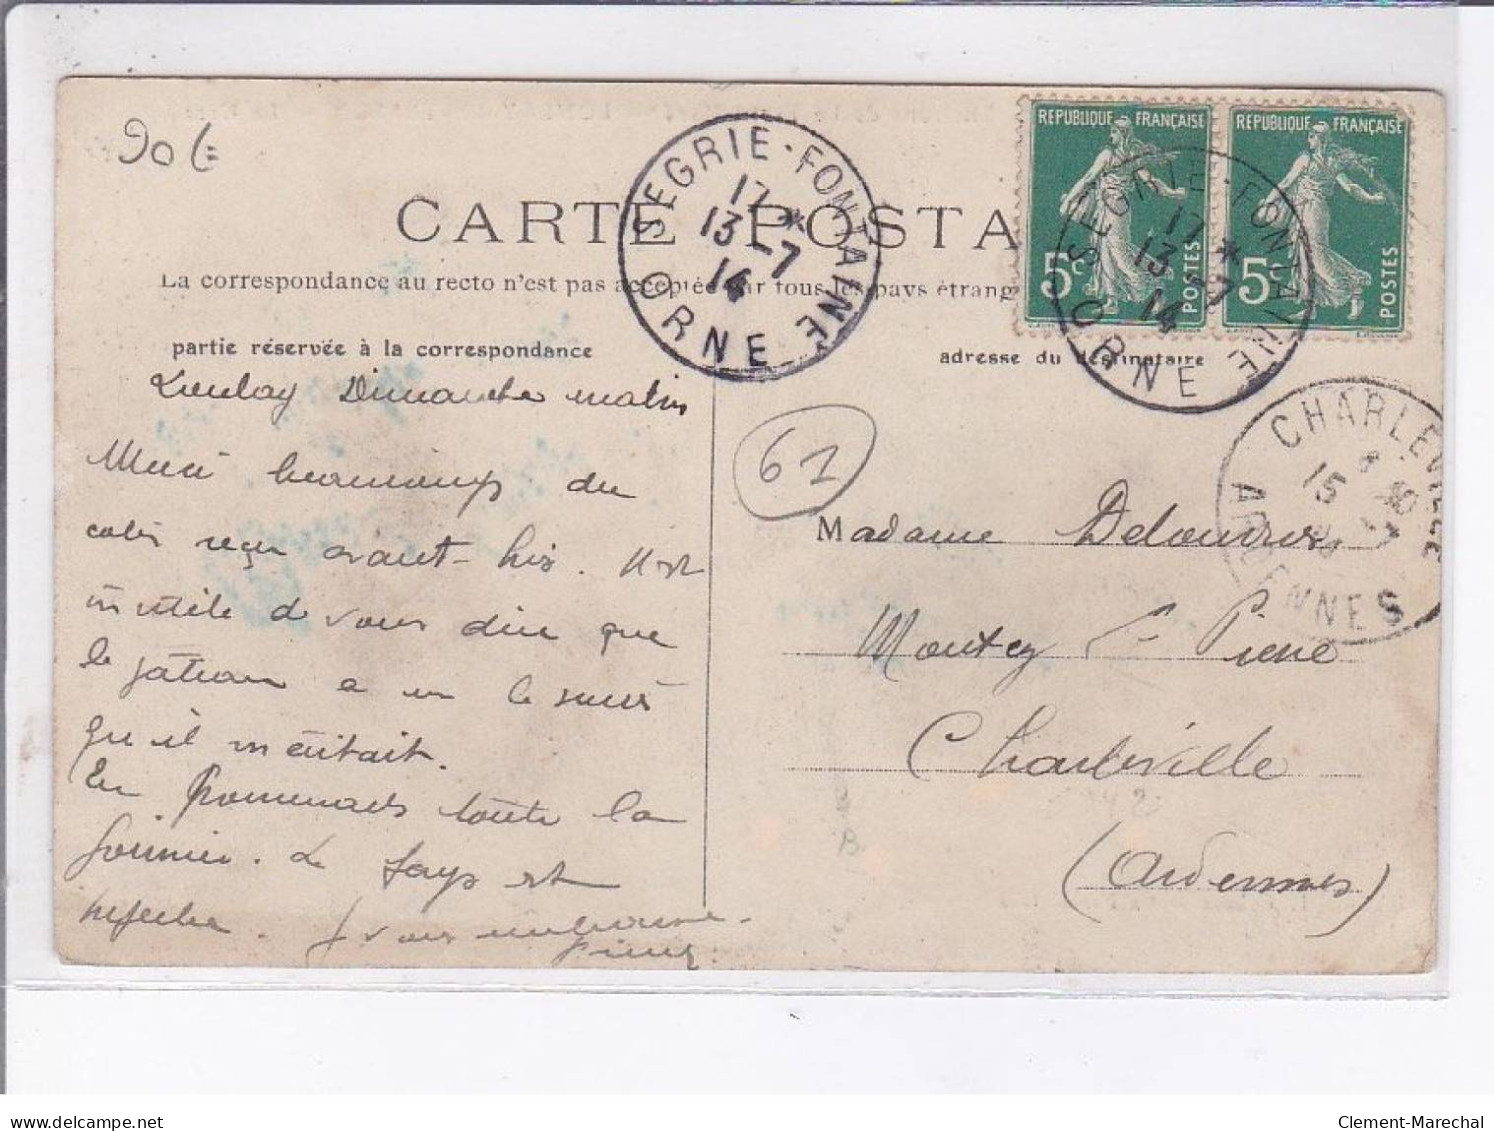 90 €
CARTE POSTA
La correspondance au recto n'est pas acceptée par tous les pays étrang
partie réservée à la correspondance
adresse du destinataire
SEGRIE-FONTAINE
17 *
13 -7
14
ORNE
RÉPUBLIQUE FRANÇAISE
5c POSTES
RÉPUBLIQUE FRANÇAISE
5c POSTES
SEGRIE-FONTAINE
17 *
13 -7
14
ORNE
CHARLEVILLE
15 -7
ARDENNES
61
Dimanche matin
Merci beaucoup du
colis reçu avant-hier. Il est
inutile de vous dire que
le gâteau a eu le succès
qu'il méritait.
En promenades toute la
journée. Le pays est
superbe. Je vous embrasse.
Madame
St Pierre
Charleville
(Ardennes)
delcampe.net
Clement-Marechal